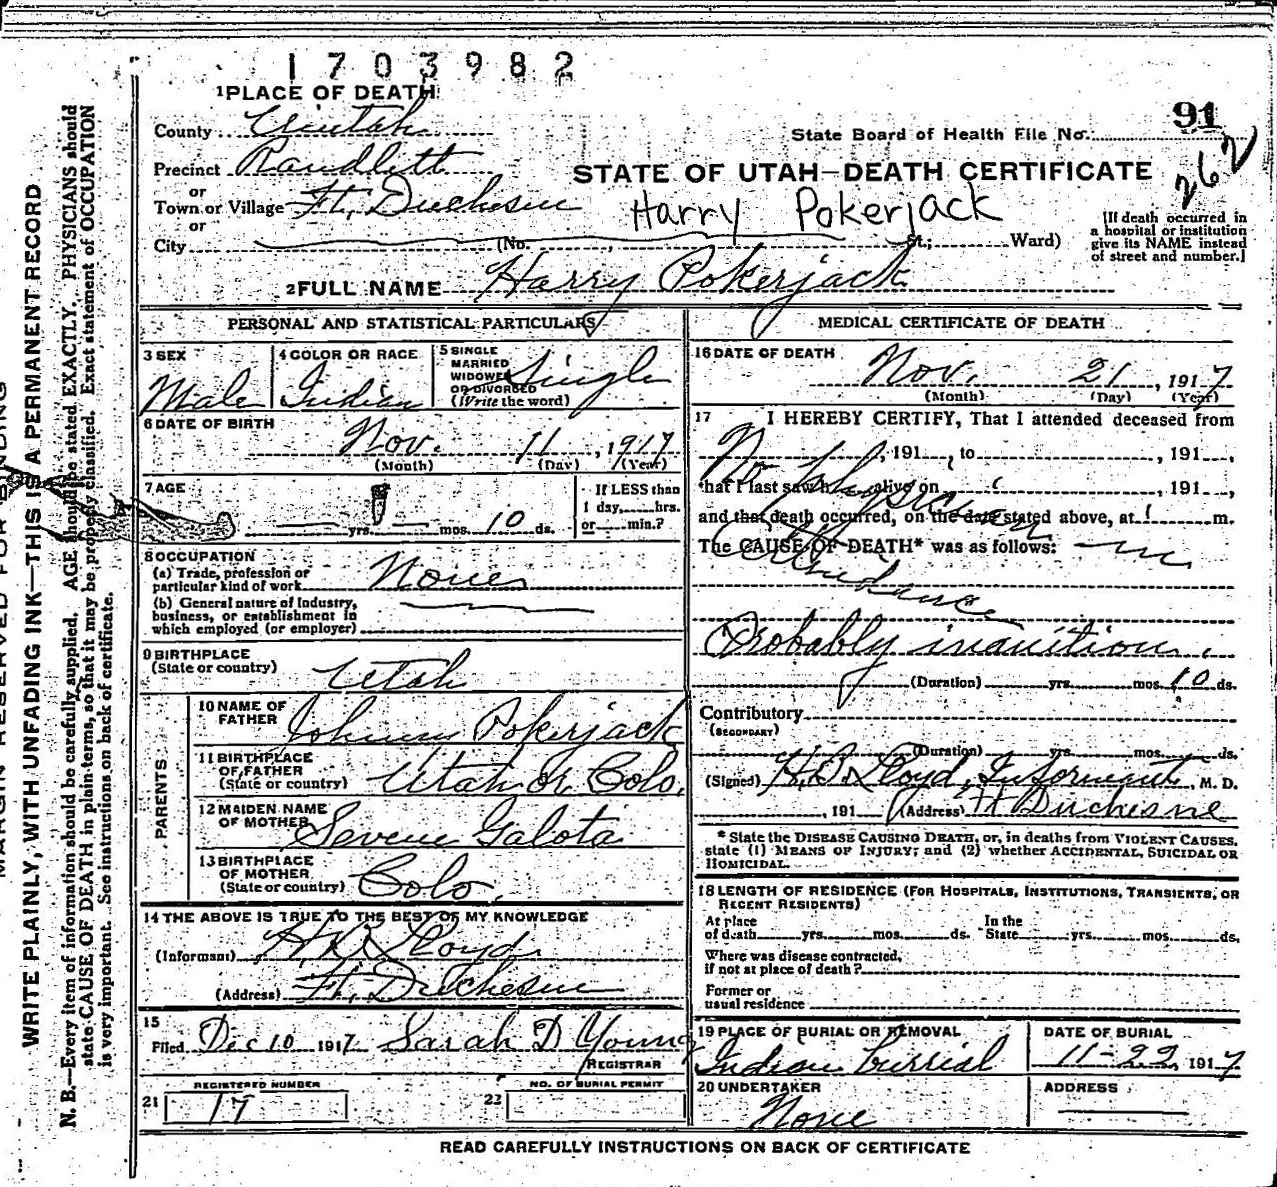 1703982
1 PLACE OF DEATH
County Uintah
Precinct Randlett
or
Town or Village Ft. Duchesne
or
City (No. St.; Ward)
91
State Board of Health File No.
262
STATE OF UTAH—DEATH CERTIFICATE
Harry Pokerjack
[If death occurred in
a hospital or institution
give its NAME instead
of street and number.]
2 FULL NAME Harry Pokerjack
PERSONAL AND STATISTICAL PARTICULARS
3 SEX
Male
4 COLOR OR RACE
Indian
5 SINGLE
MARRIED
WIDOWED
OR DIVORCED
(Write the word)
Single
6 DATE OF BIRTH
Nov. 11, 1917
(Month) (Day) (Year)
7 AGE
yrs. mos. 10 ds.
If LESS than
1 day, hrs.
or min.?
8 OCCUPATION
(a) Trade, profession or
particular kind of work None
(b) General nature of Industry,
business, or establishment in
which employed (or employer)
9 BIRTHPLACE
(State or country) Utah
PARENTS
10 NAME OF
FATHER Johnny Pokerjack
11 BIRTHPLACE
OF FATHER
(State or country) Utah or Colo.
12 MAIDEN NAME
OF MOTHER Severe Galota
13 BIRTHPLACE
OF MOTHER
(State or country) Colo.
14 THE ABOVE IS TRUE TO THE BEST OF MY KNOWLEDGE
(Informant) H.B. Lloyd
(Address) Ft. Duchesne
15
Filed Dec 10 1917 Sarah D Young
REGISTRAR
REGISTERED NUMBER
21 17
NO. OF BURIAL PERMIT
22
MEDICAL CERTIFICATE OF DEATH
16 DATE OF DEATH
Nov. 21, 1917
(Month) (Day) (Year)
17 I HEREBY CERTIFY, That I attended deceased from
, 191 , to , 191 ,
that I last saw h alive on , 191 ,
and that death occurred, on the date stated above, at m.
The CAUSE OF DEATH* was as follows:
No physician in
attendance
Probably inanition.
(Duration) yrs. mos. 10 ds.
Contributory
(SECONDARY)
(Duration) yrs. mos. ds.
(Signed) H.B. Lloyd, Informant, M. D.
, 191 (Address) Ft Duchesne
* State the DISEASE CAUSING DEATH, or, in deaths from VIOLENT CAUSES,
state (1) MEANS OF INJURY; and (2) whether ACCIDENTAL, SUICIDAL OR
HOMICIDAL.
18 LENGTH OF RESIDENCE (FOR HOSPITALS, INSTITUTIONS, TRANSIENTS, OR
RECENT RESIDENTS)
At place
of death yrs. mos. ds.
In the
State yrs. mos. ds.
Where was disease contracted,
if not at place of death?
Former or
usual residence
19 PLACE OF BURIAL OR REMOVAL
Indian burrial
DATE OF BURIAL
11-22, 1917
20 UNDERTAKER
None
ADDRESS
READ CAREFULLY INSTRUCTIONS ON BACK OF CERTIFICATE
MARGIN RESERVED FOR BINDING
WRITE PLAINLY, WITH UNFADING INK—THIS IS A PERMANENT RECORD
N. B.—Every item of information should be carefully supplied. AGE should be stated EXACTLY. PHYSICIANS should
state CAUSE OF DEATH in plain terms, so that it may be properly classified. Exact statement of OCCUPATION
is very important. See instructions on back of certificate.